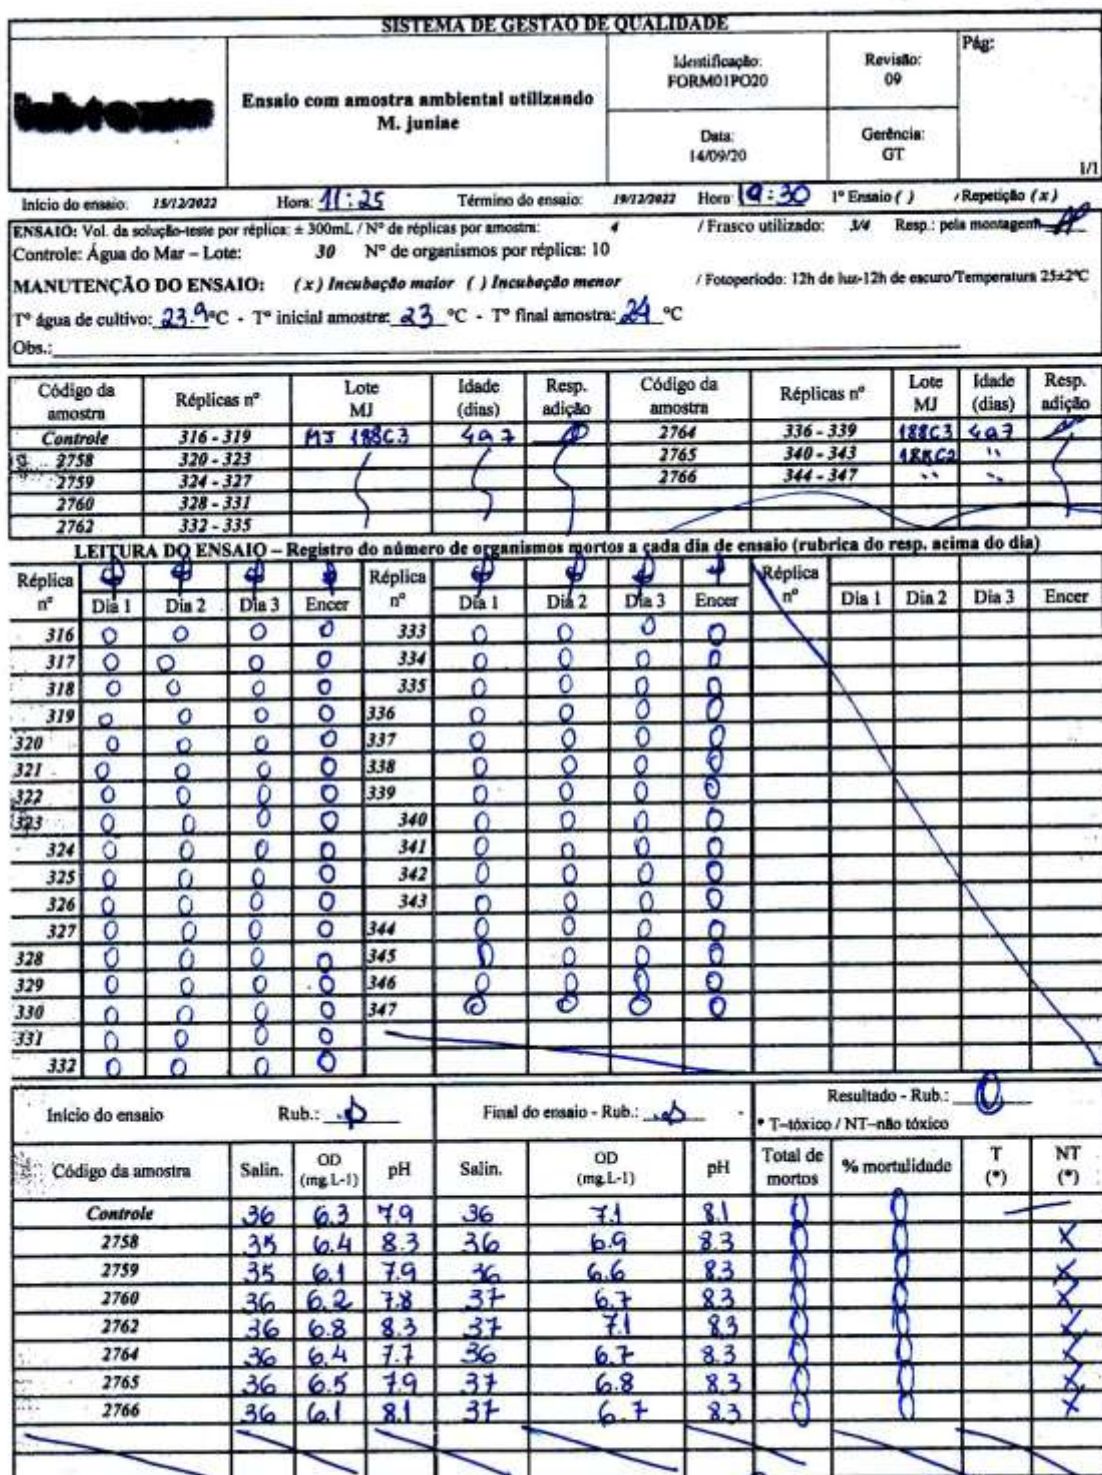 SISTEMA DE GESTÃO DE QUALIDADE
Ensaio com amostra ambiental utilizando M. juniae
Identificação: FORM01PO20
Revisão: 09
Pág:
Data: 14/09/20
Gerência: GT
1/1
Início do ensaio: 15/12/2022 Hora: 11:25 Término do ensaio: 19/12/2022 Hora: 19:30 1º Ensaio ( ) / Repetição (x)
ENSAIO: Vol. da solução-teste por réplica: ± 300mL / Nº de réplicas por amostra: 4 / Frasco utilizado: 3/4 Resp.: pela montagem
Controle: Água do Mar – Lote: 30 Nº de organismos por réplica: 10
MANUTENÇÃO DO ENSAIO: (x) Incubação maior ( ) Incubação menor / Fotoperíodo: 12h de luz-12h de escuro/Temperatura 25±2ºC
Tº água de cultivo: 23.9 ºC - Tº inicial amostra: 23 ºC - Tº final amostra: 24 ºC
Obs.:
Código da amostra Réplicas nº Lote MJ Idade (dias) Resp. adição Código da amostra Réplicas nº Lote MJ Idade (dias) Resp. adição
Controle 316 - 319 MJ 188C3 4 a 7 2764 336 - 339 188C3 4 a 7
2758 320 - 323 2765 340 - 343 188C2 "
2759 324 - 327 2766 344 - 347 " "
2760 328 - 331
2762 332 - 335
LEITURA DO ENSAIO – Registro do número de organismos mortos a cada dia de ensaio (rubrica do resp. acima do dia)
Réplica nº Dia 1 Dia 2 Dia 3 Encer Réplica nº Dia 1 Dia 2 Dia 3 Encer Réplica nº Dia 1 Dia 2 Dia 3 Encer
316 0 0 0 0 333 0 0 0 0
317 0 0 0 0 334 0 0 0 0
318 0 0 0 0 335 0 0 0 0
319 0 0 0 0 336 0 0 0 0
320 0 0 0 0 337 0 0 0 0
321 0 0 0 0 338 0 0 0 0
322 0 0 0 0 339 0 0 0 0
323 0 0 0 0 340 0 0 0 0
324 0 0 0 0 341 0 0 0 0
325 0 0 0 0 342 0 0 0 0
326 0 0 0 0 343 0 0 0 0
327 0 0 0 0 344 0 0 0 0
328 0 0 0 0 345 0 0 0 0
329 0 0 0 0 346 0 0 0 0
330 0 0 0 0 347 0 0 0 0
331 0 0 0 0
332 0 0 0 0
Início do ensaio Rub.: Final do ensaio - Rub.: Resultado - Rub.:
* T–tóxico / NT–não tóxico
Código da amostra Salin. OD (mg.L-1) pH Salin. OD (mg.L-1) pH Total de mortos % mortalidade T (*) NT (*)
Controle 36 6.3 7.9 36 7.1 8.1 0 0
2758 35 6.4 8.3 36 6.9 8.3 0 0 X
2759 35 6.1 7.9 36 6.6 8.3 0 0 X
2760 36 6.2 7.8 37 6.7 8.3 0 0 X
2762 36 6.8 8.3 37 7.1 8.3 0 0 X
2764 36 6.4 7.7 36 6.7 8.3 0 0 X
2765 36 6.5 7.9 37 6.8 8.3 0 0 X
2766 36 6.1 8.1 37 6.7 8.3 0 0 X